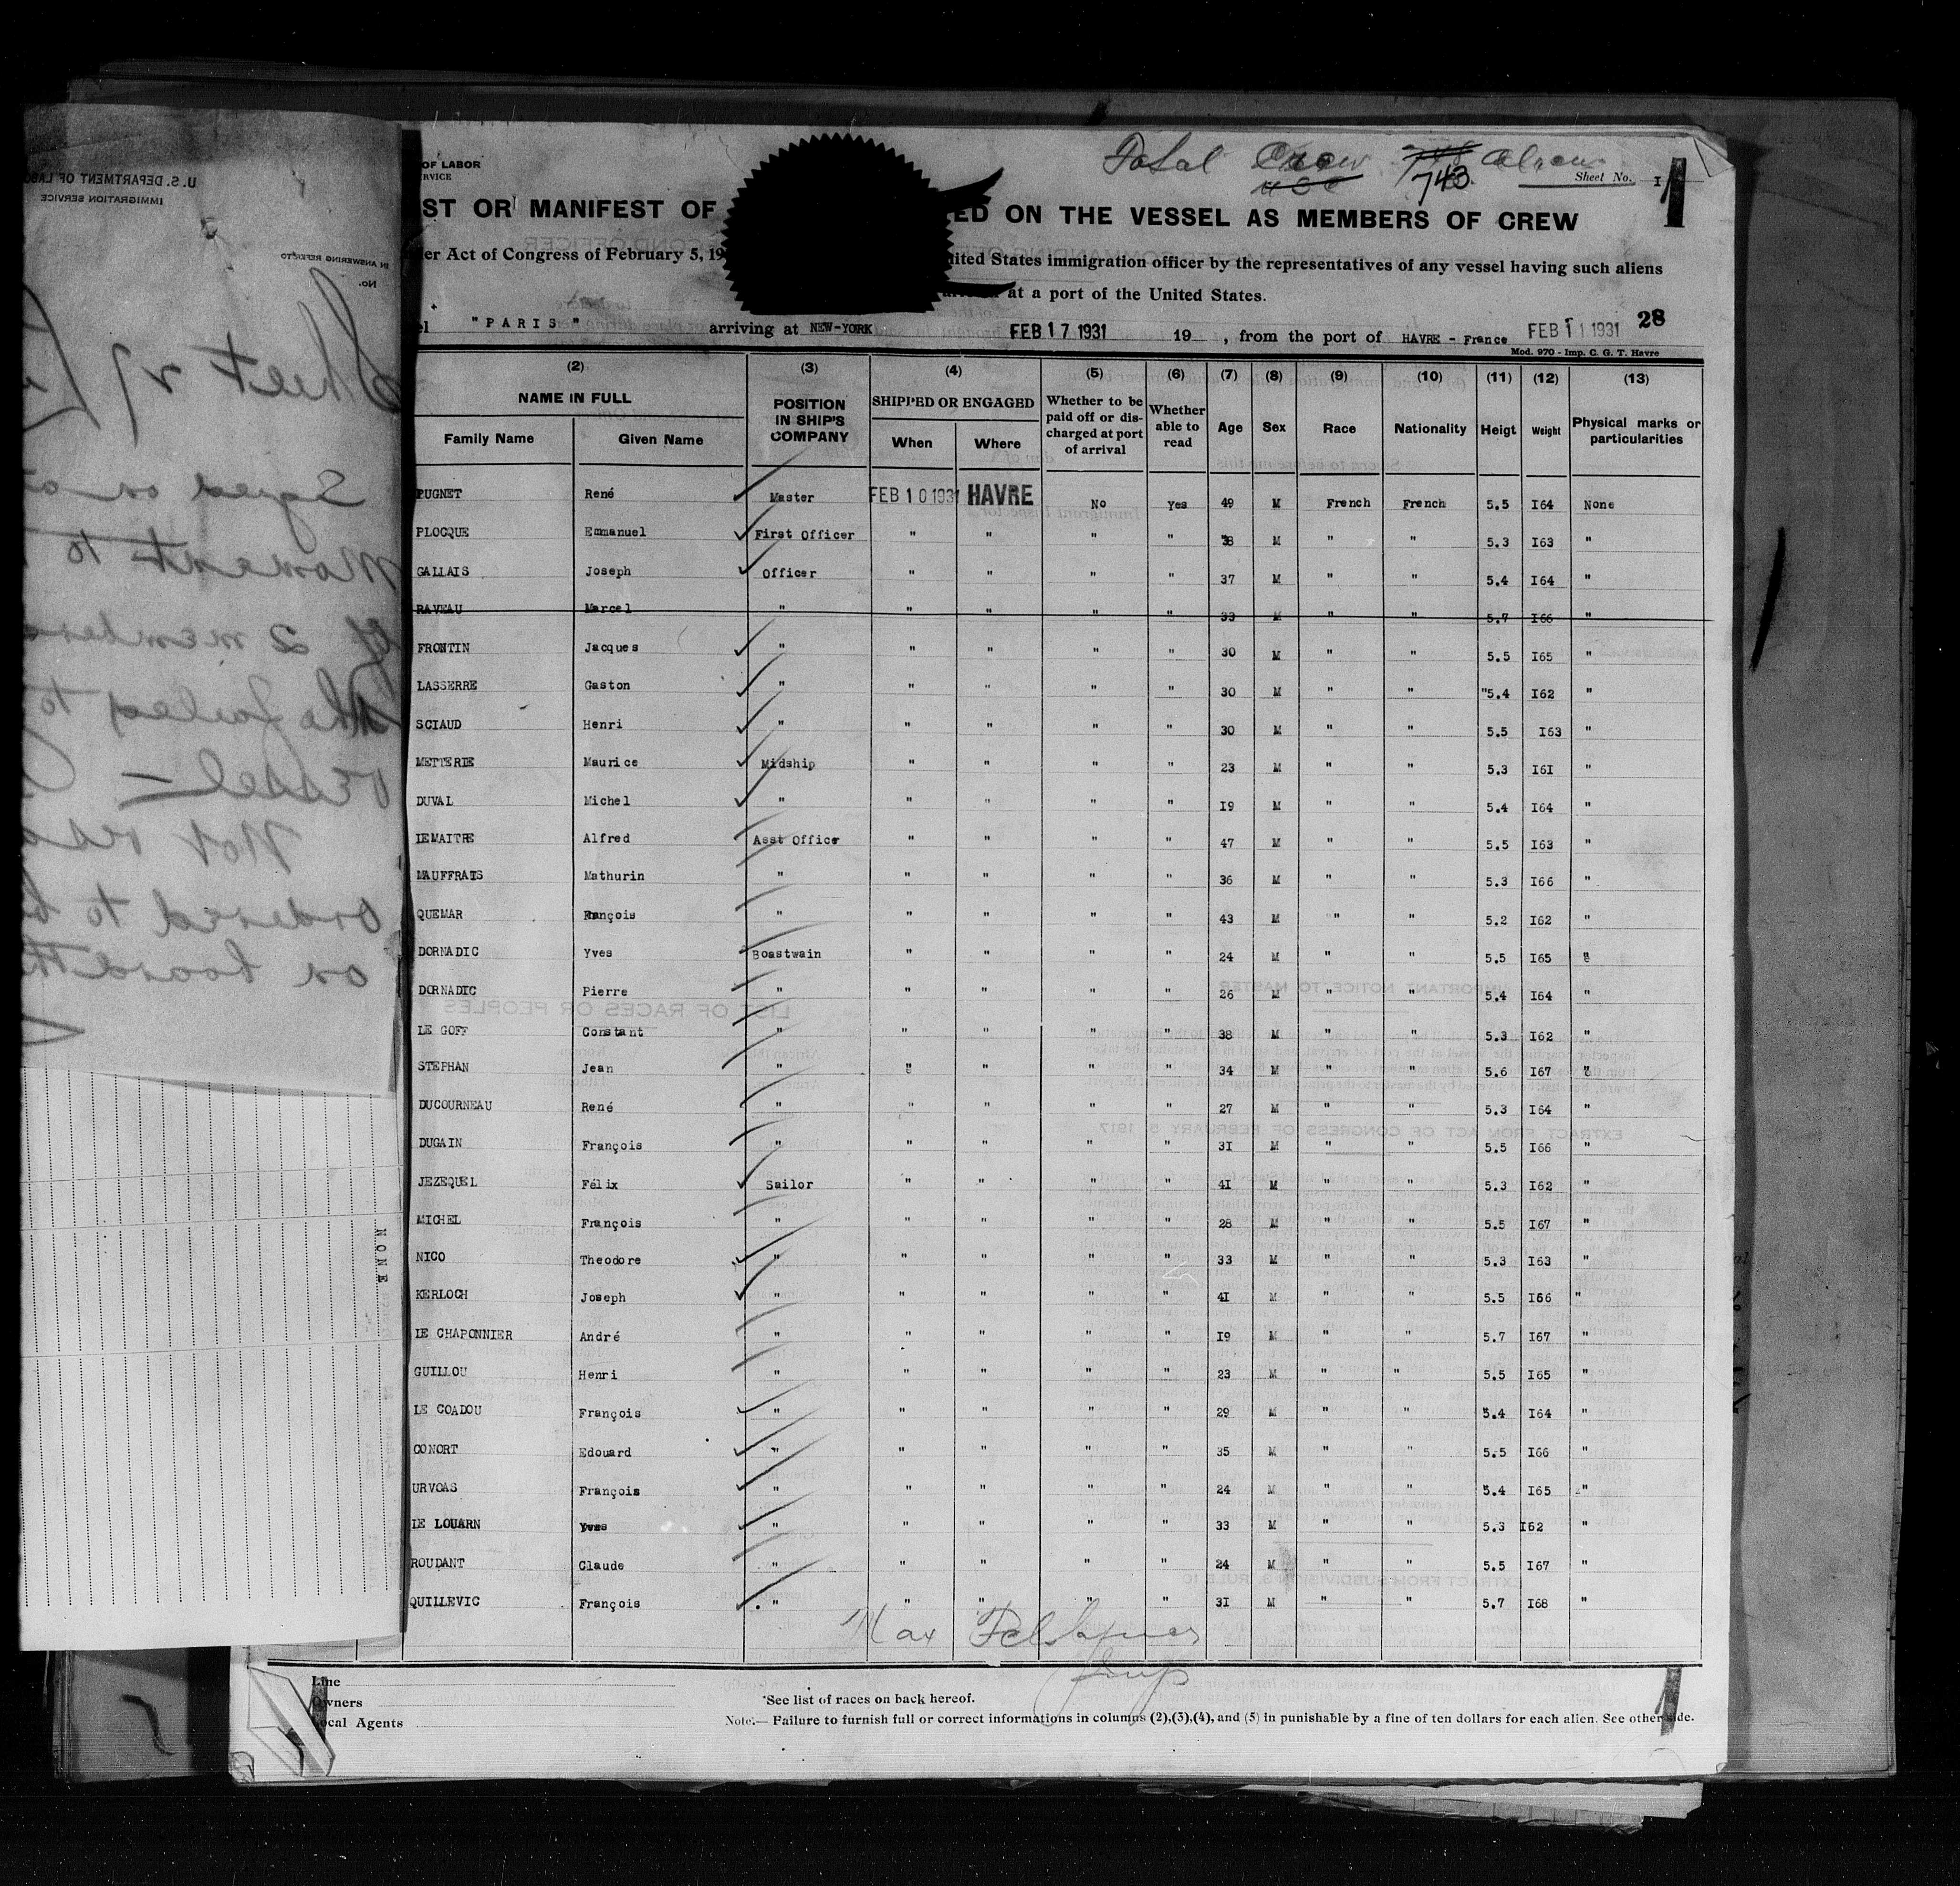 U. S. DEPARTMENT OF LABO
IMMIGRATION SERVICE
IN ANSWERING REFER TO
No.
Sheet 27
Signed on
Moment to
of 2 members
who failed to
vessel —
Not
ordered to b
on board th
NONE
OF LABOR
RVICE
Total Crew 743 Aliens
Sheet No. I
ST OR MANIFEST OF ED ON THE VESSEL AS MEMBERS OF CREW
er Act of Congress of February 5, 19 ited States immigration officer by the representatives of any vessel having such aliens
at a port of the United States.
el "PARIS" arriving at NEW-YORK FEB 17 1931 19 , from the port of HAVRE - France FEB 11 1931 28
Mod. 970 - Imp. C. G. T. Havre
(2) (3) (4) (5) (6) (7) (8) (9) (10) (11) (12) (13)
NAME IN FULL POSITION IN SHIP'S COMPANY SHIPPED OR ENGAGED Whether to be paid off or discharged at port of arrival Whether able to read Age Sex Race Nationality Heigt Weight Physical marks or particularities
Family Name Given Name When Where
PUGNET René Master FEB 10 1931 HAVRE No Yes 49 M French French 5.5 I64 None
PLOCQUE Emmanuel First Officer " " " " 38 M " " 5.3 I63 "
GALLAIS Joseph Officer " " " " 37 M " " 5.4 I64 "
RAVEAU Marcel " " " " " 33 M " " 5.7 I66 "
FRONTIN Jacques " " " " " 30 M " " 5.5 I65 "
LASSERRE Gaston " " " " " 30 M " " "5.4 I62 "
SCIAUD Henri " " " " " 30 M " " 5.5 I63 "
METTERIE Maurice Midship " " " " 23 M " " 5.3 I6I "
DUVAL Michel " " " " " I9 M " " 5.4 I64 "
LEMAITRE Alfred Asst Office " " " " 47 M " " 5.5 I63 "
MAUFFRAIS Mathurin " " " " " 36 M " " 5.3 I66 "
QUEMAR François " " " " " 43 M " " 5.2 I62 "
DORNADIC Yves Boastwain " " " " 24 M " " 5.5 I65 "
DORNADIC Pierre " " " " " 26 M " " 5.4 I64 "
LE GOFF Constant " " " " " 38 M " " 5.3 I62 "
STEPHAN Jean " " " " " 34 M " " 5.6 I67 "
DUCOURNEAU René " " " " " 27 M " " 5.3 I64 "
DUGAIN François " " " " " 3I M " " 5.5 I66 "
JEZEQUEL Félix Sailor " " " " 4I M " " 5.3 I62 "
MICHEL François " " " " " 28 M " " 5.5 I67 "
NICO Theodore " " " " " 33 M " " 5.3 I63 "
KERLOCH Joseph " " " " " 4I M " " 5.5 I66 "
LE CHAPONNIER André " " " " " I9 M " " 5.7 I67 "
GUILLOU Henri " " " " " 23 M " " 5.5 I65 "
LE COADOU François " " " " " 29 M " " 5.4 I64 "
CONORT Edouard " " " " " 35 M " " 5.5 I66 "
URVOAS François " " " " " 24 M " " 5.4 I65 "
LE LOUARN Yves " " " " " 33 M " " 5.3 I62 "
ROUDANT Claude " " " " " 24 M " " 5.5 I67 "
QUILLEVIC François " " " " " 3I M " " 5.7 I68 "
Max
Line
Owners
Local Agents
*See list of races on back hereof.
Note.— Failure to furnish full or correct informations in columns (2),(3),(4), and (5) in punishable by a fine of ten dollars for each alien. See other side.